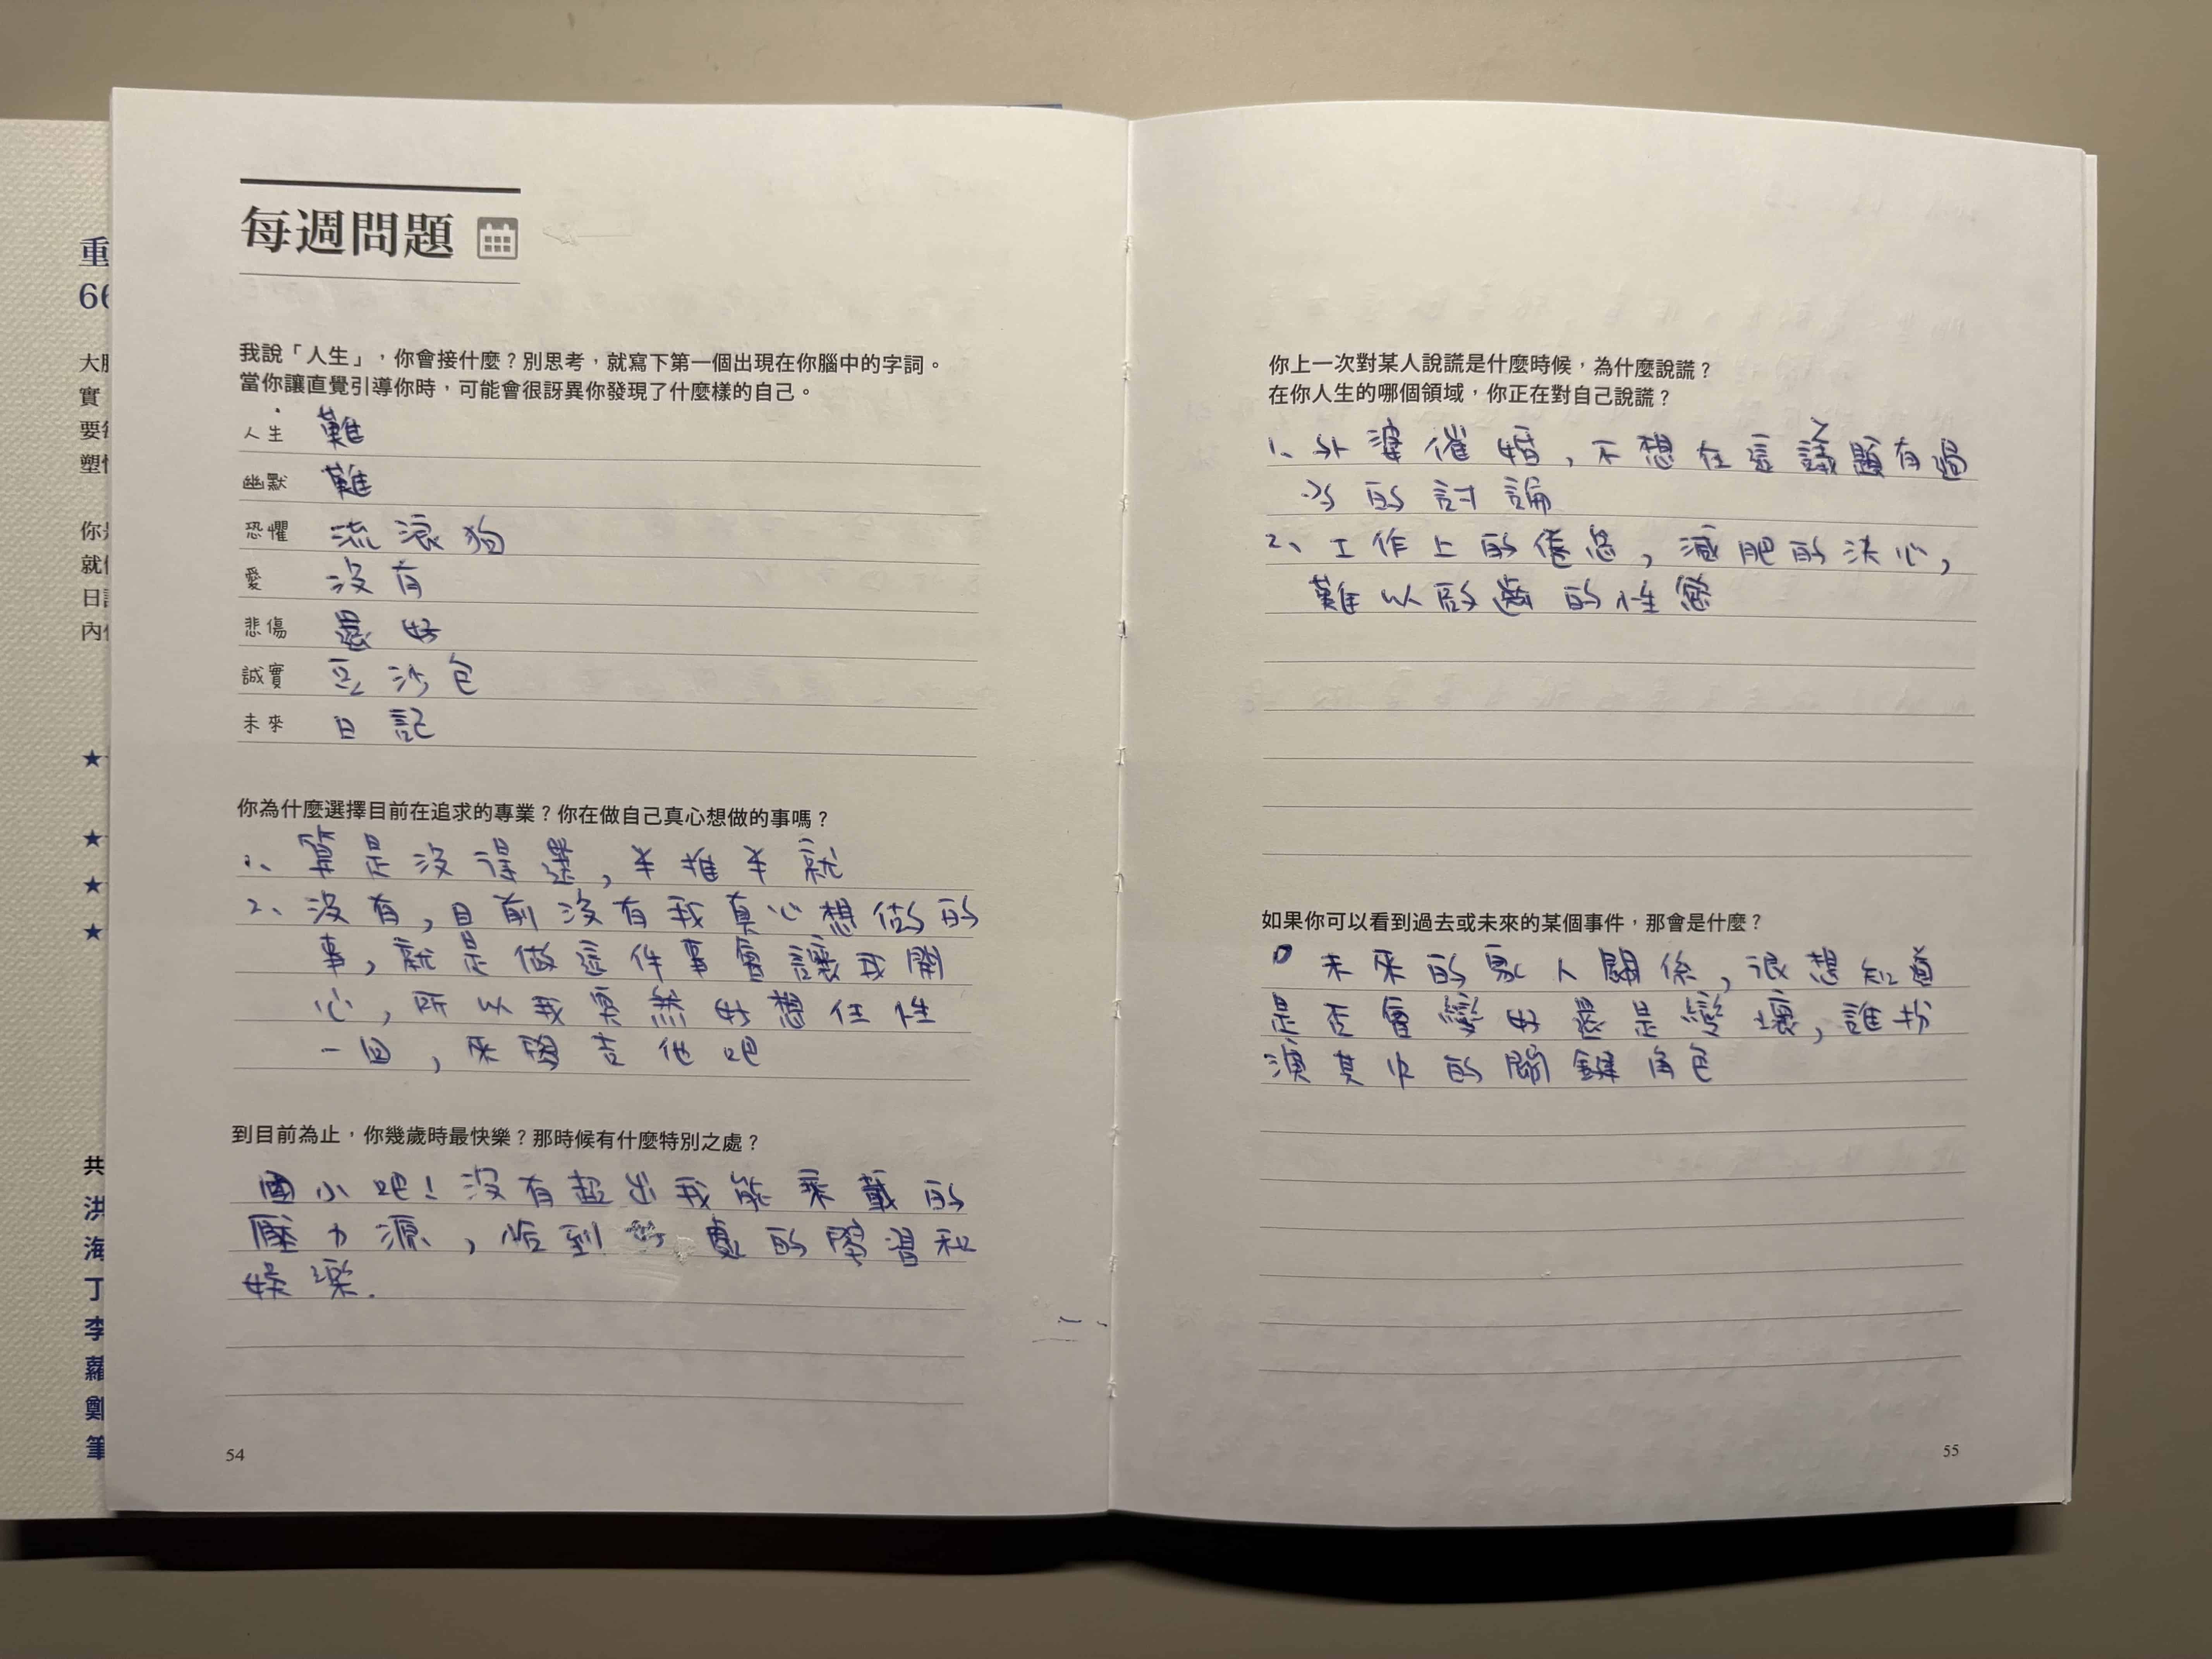 重
66
大腦
實
要
塑
你
就
日
內
★
★
★
★
共
洪
海
丁
李
蘿
鄭
筆
每週問題
我說「人生」，你會接什麼？別思考，就寫下第一個出現在你腦中的字詞。
當你讓直覺引導你時，可能會很訝異你發現了什麼樣的自己。
人生 難
幽默 難
恐懼 流浪狗
愛 沒有
悲傷 還好
誠實 豆沙包
未來 日記
你為什麼選擇目前在追求的專業？你在做自己真心想做的事嗎？
1、算是沒得選，半推半就
2、沒有，目前沒有我真心想做的
事，就是做這件事會讓我開
心，所以我突然好想任性
一回，來學吉他吧
到目前為止，你幾歲時最快樂？那時候有什麼特別之處？
國小吧！沒有超出我能乘載的
壓力源，恰到好處的學習和
娛樂．
54
你上一次對某人說謊是什麼時候，為什麼說謊？
在你人生的哪個領域，你正在對自己說謊？
1、外婆催婚，不想在這議題有過
多的討論
2、工作上的倦怠，減肥的決心，
難以啟齒的性慾
如果你可以看到過去或未來的某個事件，那會是什麼？
未來的家人關係，很想知道
是否會變好還是變壞，誰扮
演其中的關鍵角色
55